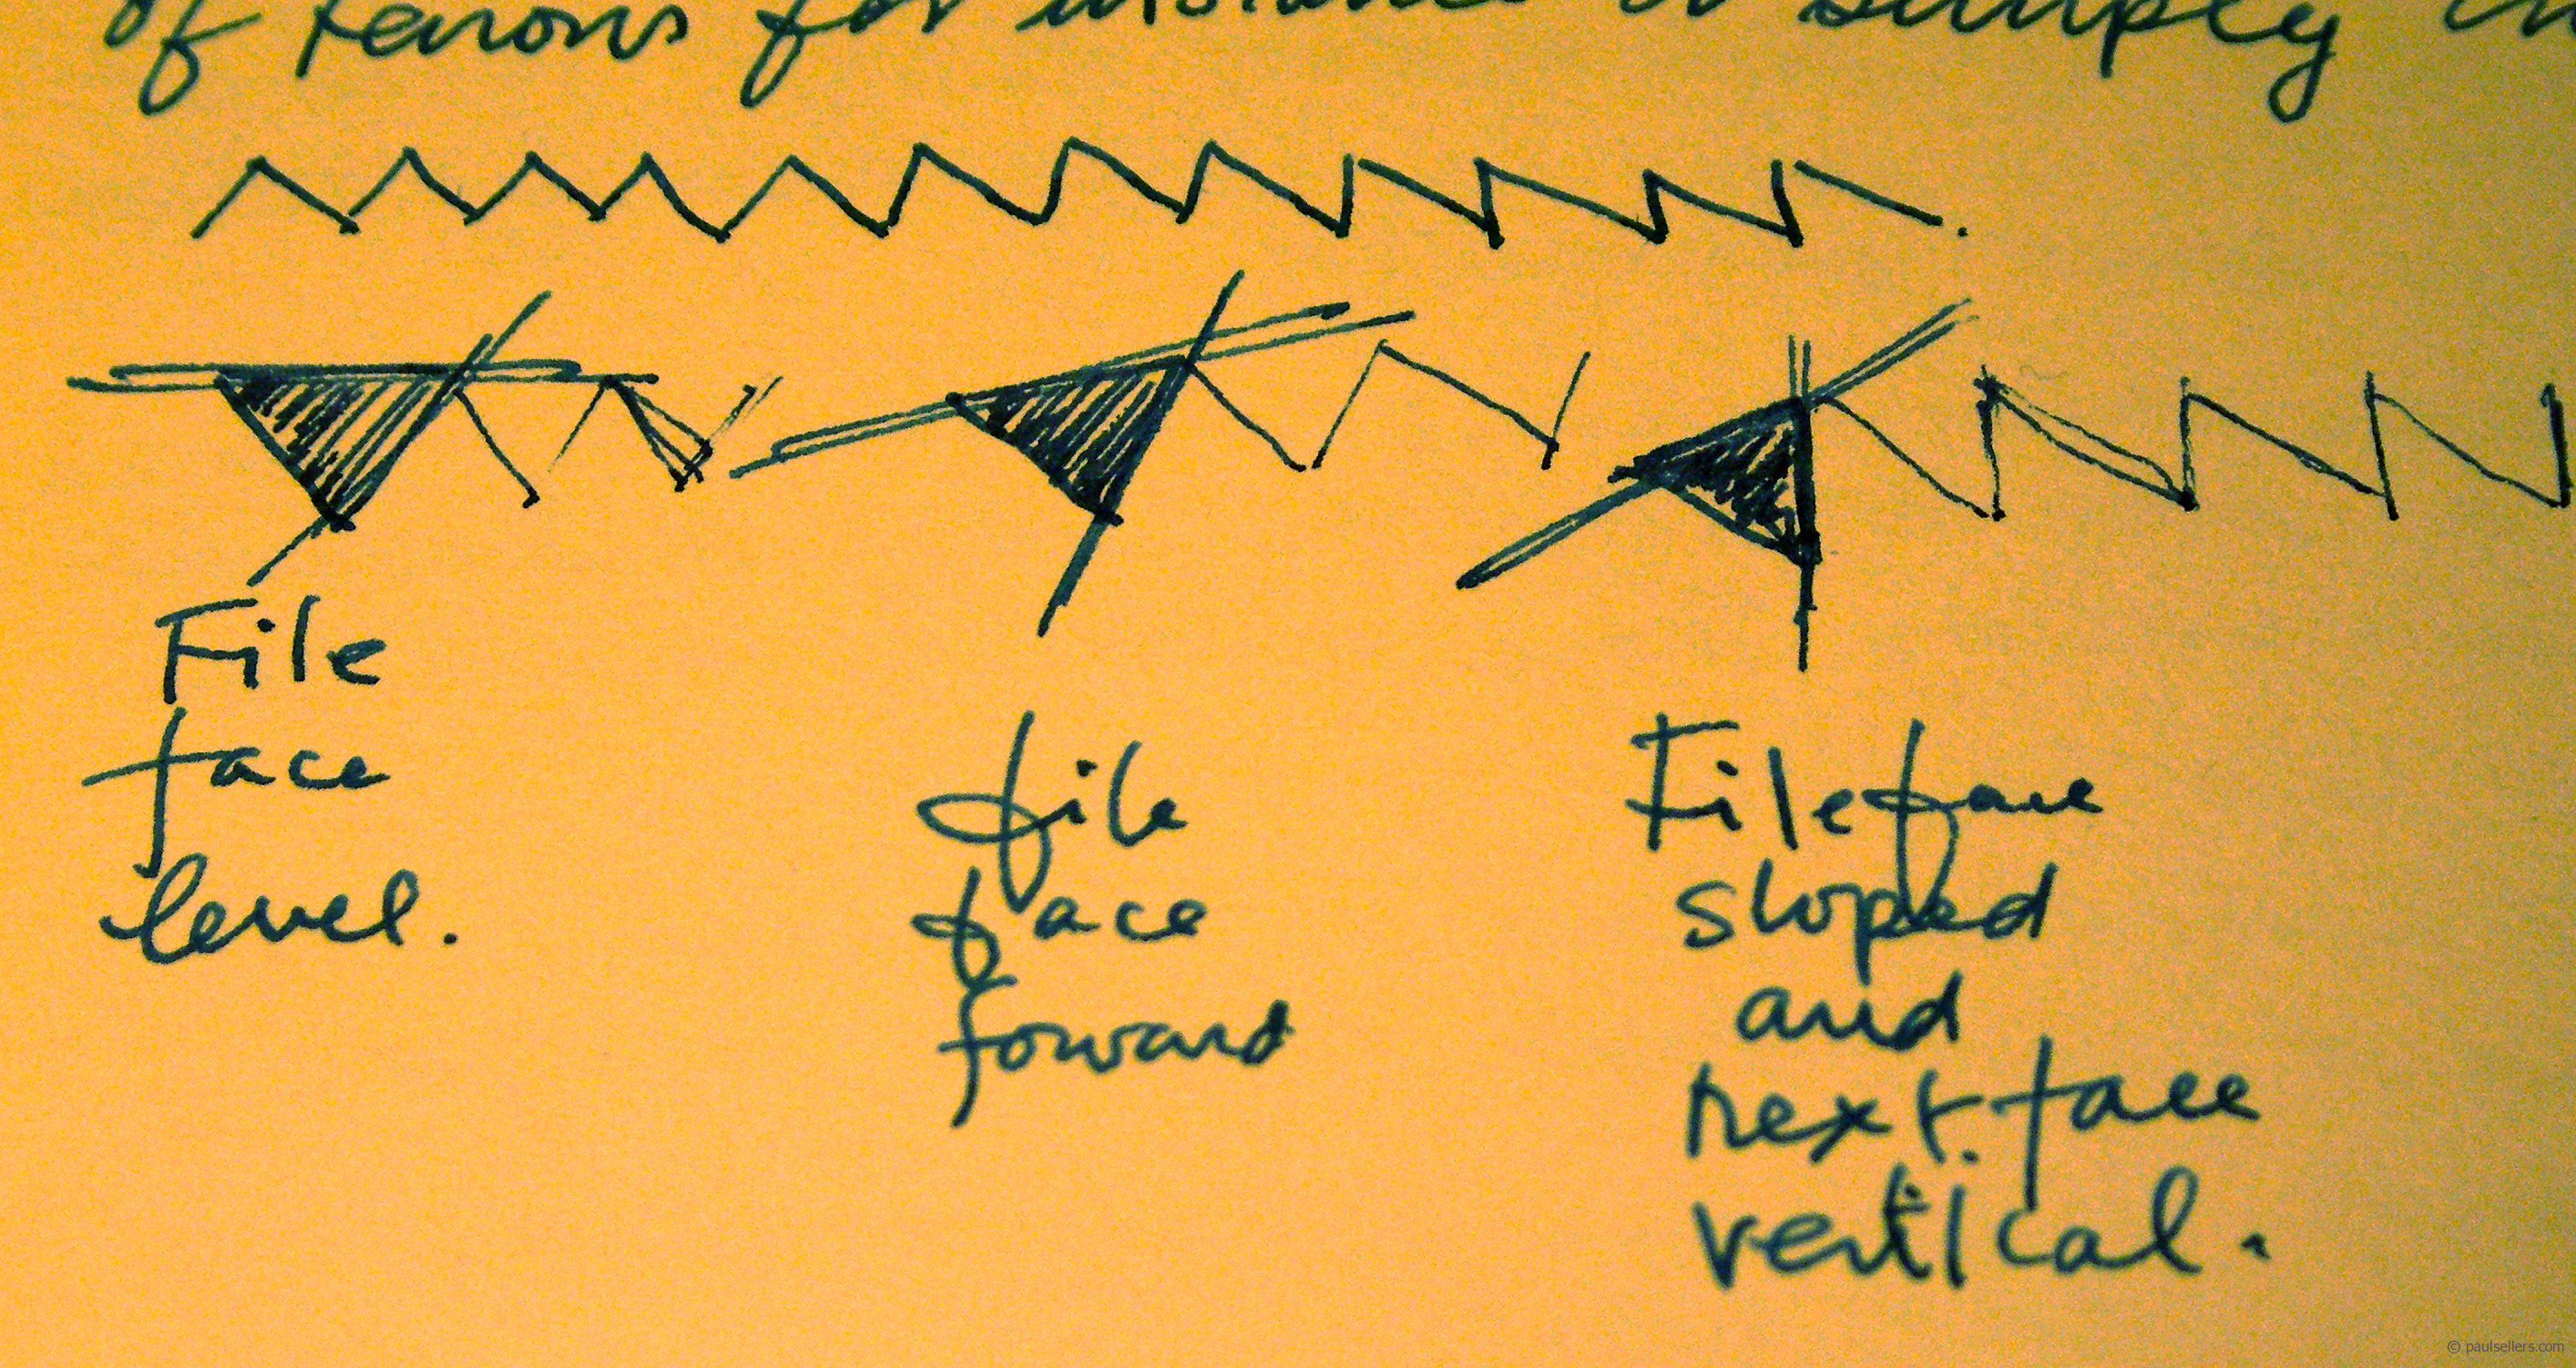 of tenons for instance or simply
File
face
level.
file
face
forward
File face
sloped
and
next face
vertical.
© paulsellers.com